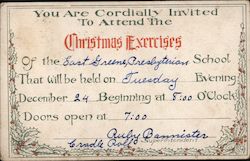 You Are Cordially Invited
To Attend The
Christmas Exercises
Of the East Greene Presbyterian School
That will be held on Tuesday Evening
December 24 Beginning at 8:00 O'Clock
Doors open at 7:00
Ruby Bannister
Cradle Roll Superintendent